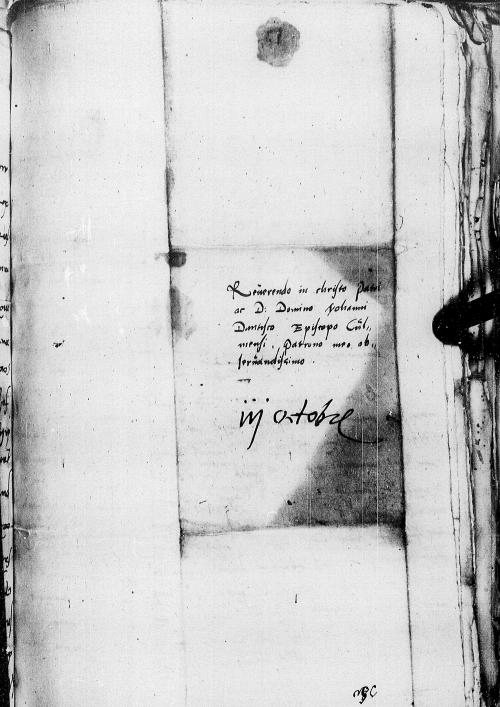 Reverendo in christo Patri
ac D: Domino Iohanni
Dantisco Episcopo Cul,
mensi, Patrono meo ob,
servandissimo
iij octobre